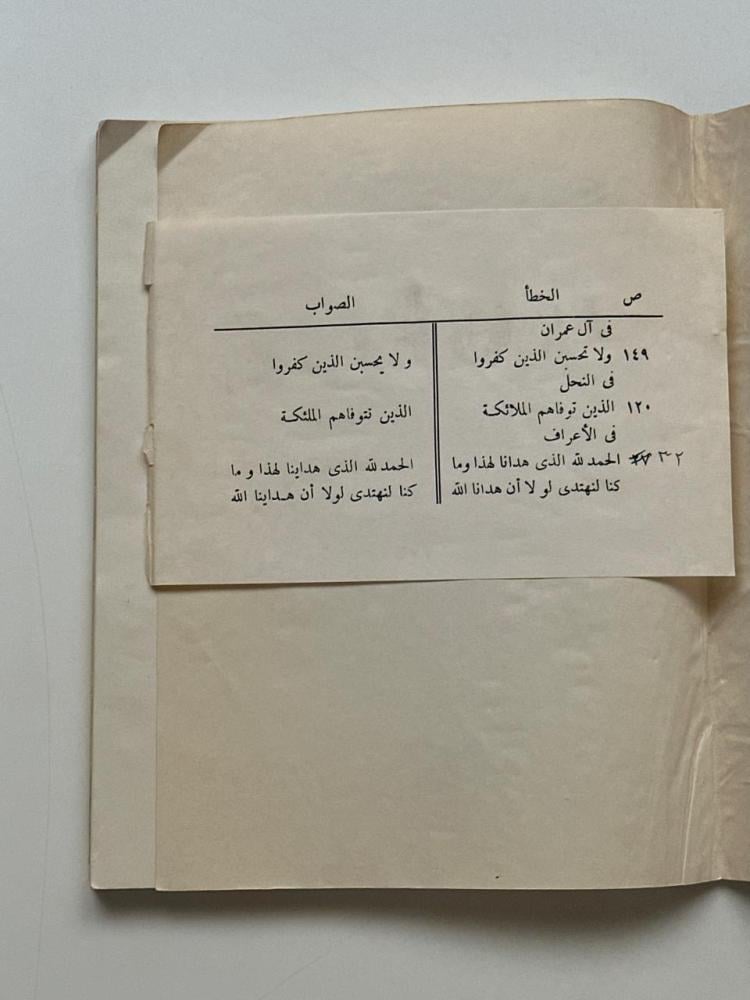 ص الخطأ الصواب
فى آل عمران
١٤٩ ولا تحسبن الذين كفروا ولا يحسبن الذين كفروا
فى النحل
١٢٠ الذين توفاهم الملائكة الذين نتوفاهم الملئكة
فى الأعراف
٣٢ الحمد لله الذى هدانا لهذا وما الحمد لله الذى هداينا لهذا وما
كنا لنهتدى لو لا أن هدانا الله كنا لنهتدى لولا أن هداينا الله